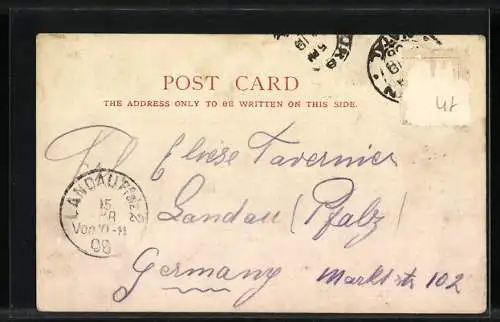 POST CARD
THE ADDRESS ONLY TO BE WRITTEN ON THIS SIDE.
47
Frl Eliese Tavernier
Landau (Pfalz)
Germany Marktstr 102
LANDAU PFALZ 2
15
Vor. XI-11
06